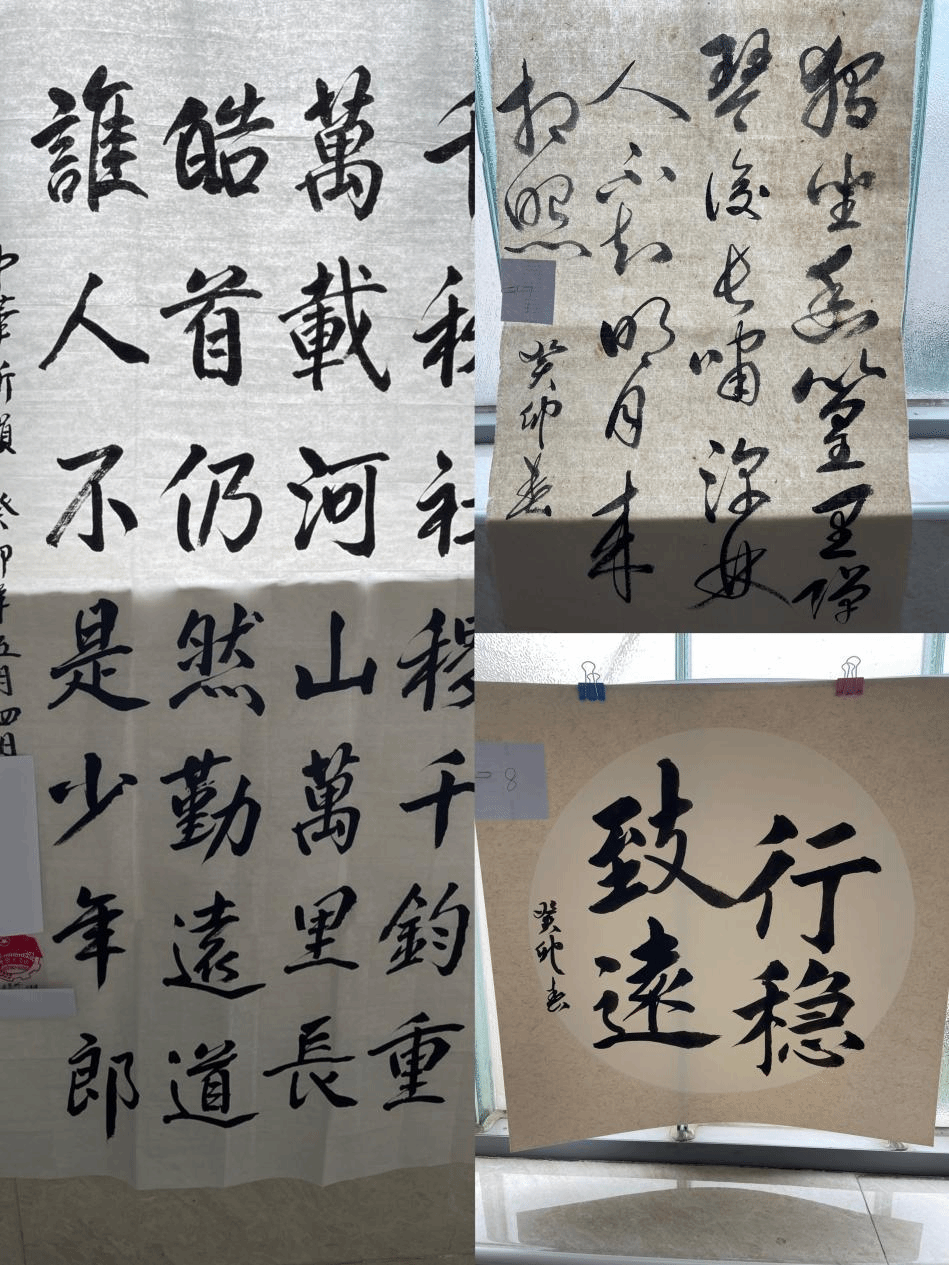 千秋社稷千鈞重
萬載河山萬里長
皓首仍然勤遠道
誰人不是少年郎
中華 癸卯年五月四日
獨坐幽篁里彈
琴復長嘯深林
人不知明月來
相照
癸卯春
行稳
致遠
癸卯春
8